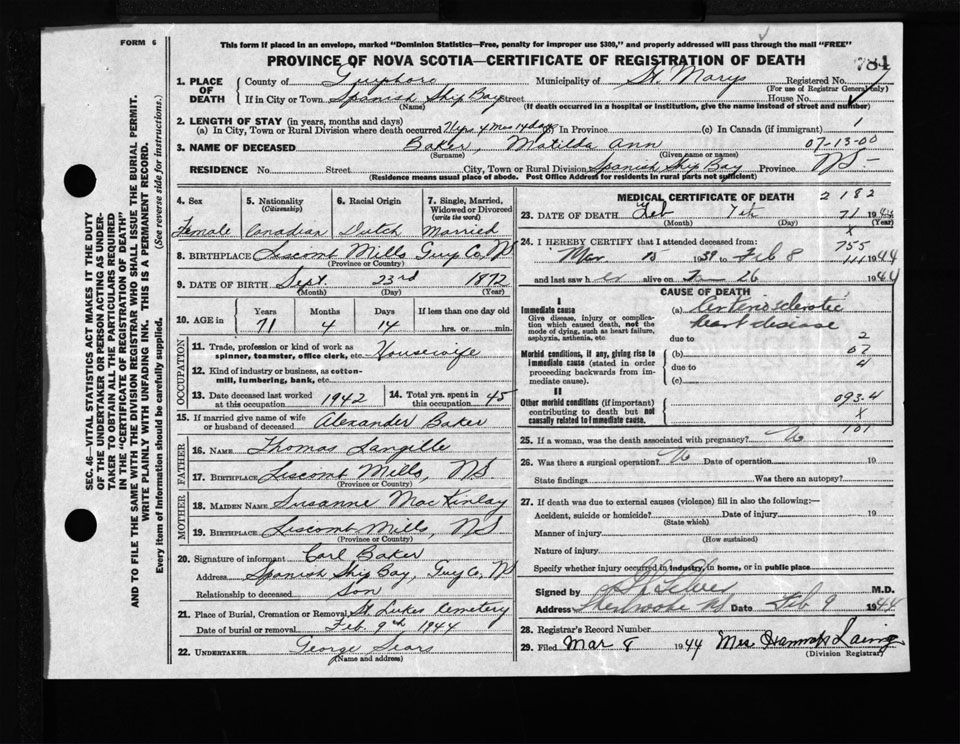 FORM 6
This form if placed in an envelope, marked "Dominion Statistics—Free, penalty for improper use $300," and properly addressed will pass through the mail "FREE"
PROVINCE OF NOVA SCOTIA—CERTIFICATE OF REGISTRATION OF DEATH
781
1. PLACE OF DEATH
County of Guysboro Municipality of St. Marys Registered No.
(For use of Registrar General only)
If in City or Town Spanish Ship Bay Street House No.
(Name) (If death occurred in a hospital or institution, give the name instead of street and number)
2. LENGTH OF STAY (in years, months and days)
(a) In City, Town or Rural Division where death occurred 71 yrs 4 mos 14 days (b) In Province (c) In Canada (if immigrant) 1
3. NAME OF DECEASED Baker, Matilda Ann 07-13-00
(Surname) (Given name or names)
RESIDENCE No. Street City, Town or Rural Division Spanish Ship Bay Province NS-
(Residence means usual place of abode. Post Office Address for residents in rural parts not sufficient)
4. Sex
Female
5. Nationality
(Citizenship)
Canadian
6. Racial Origin
Dutch
7. Single, Married, Widowed or Divorced
(write the word)
Married
8. BIRTHPLACE Liscomb Mills Guy Co, NS
(Province or Country)
9. DATE OF BIRTH Sept. 23rd 1872
(Month) (Day) (Year)
10. AGE in
Years Months Days If less than one day old
71 4 14 hrs. or min.
OCCUPATION
11. Trade, profession or kind of work as spinner, teamster, office clerk, etc. Housewife
12. Kind of industry or business, as cotton-mill, lumbering, bank, etc.
13. Date deceased last worked at this occupation 1942
14. Total yrs. spent in this occupation 45
15. If married give name of wife or husband of deceased Alexander Baker
FATHER
16. NAME Thomas Langille
17. BIRTHPLACE Liscomb Mills, NS.
(Province or Country)
MOTHER
18. MAIDEN NAME Susanne MacKinlay
19. BIRTHPLACE Liscomb Mills, NS
(Province or Country)
20. Signature of informant Carl Baker
Address Spanish Ship Bay, Guy Co, NS
Relationship to deceased Son
21. Place of Burial, Cremation or Removal St. Lukes Cemetery
Date of burial or removal Feb. 9th 1944
22. UNDERTAKER George Sears
(Name and address)
MEDICAL CERTIFICATE OF DEATH 2182
23. DATE OF DEATH Feb 7th 71 1944
(Month) (Day) (Year)
X
24. I HEREBY CERTIFY that I attended deceased from:
755
Mar 13 1939 to Feb 8 1944
and last saw her alive on Jan 26 1944
CAUSE OF DEATH
I
Immediate cause
Give disease, injury or complication which caused death, not the mode of dying, such as heart failure, asphyxia, asthenia, etc
(a) Arteriosclerotic
heart disease
due to 2
Morbid conditions, if any, giving rise to immediate cause (stated in order proceeding backwards from immediate cause).
(b) 07
due to 4
(c)
II
Other morbid conditions (if important) contributing to death but not causally related to immediate cause.
093.4
X
101
25. If a woman, was the death associated with pregnancy? No
26. Was there a surgical operation? No Date of operation 19
State findings Was there an autopsy?
27. If death was due to external causes (violence) fill in also the following:—
Accident, suicide or homicide? Date of injury 19
(State which)
Manner of injury
(How sustained)
Nature of injury
Specify whether injury occurred in industry, in home, or in public place
Signed by M.D.
Address Sherbrooke NS Date Feb 9 1944
28. Registrar's Record Number
29. Filed Mar 8 1944 Mrs. Hannah Laing
(Division Registrar)
SEC. 46—VITAL STATISTICS ACT MAKES IT THE DUTY
OF THE UNDERTAKER OR PERSON ACTING AS UNDER-
TAKER TO OBTAIN ALL THE PARTICULARS REQUIRED
IN THE "CERTIFICATE OF REGISTRATION OF DEATH"
AND TO FILE THE SAME WITH THE DIVISION REGISTRAR WHO SHALL ISSUE THE BURIAL PERMIT.
WRITE PLAINLY WITH UNFADING INK. THIS IS A PERMANENT RECORD.
Every item of Information should be carefully supplied. (See reverse side for instructions.)